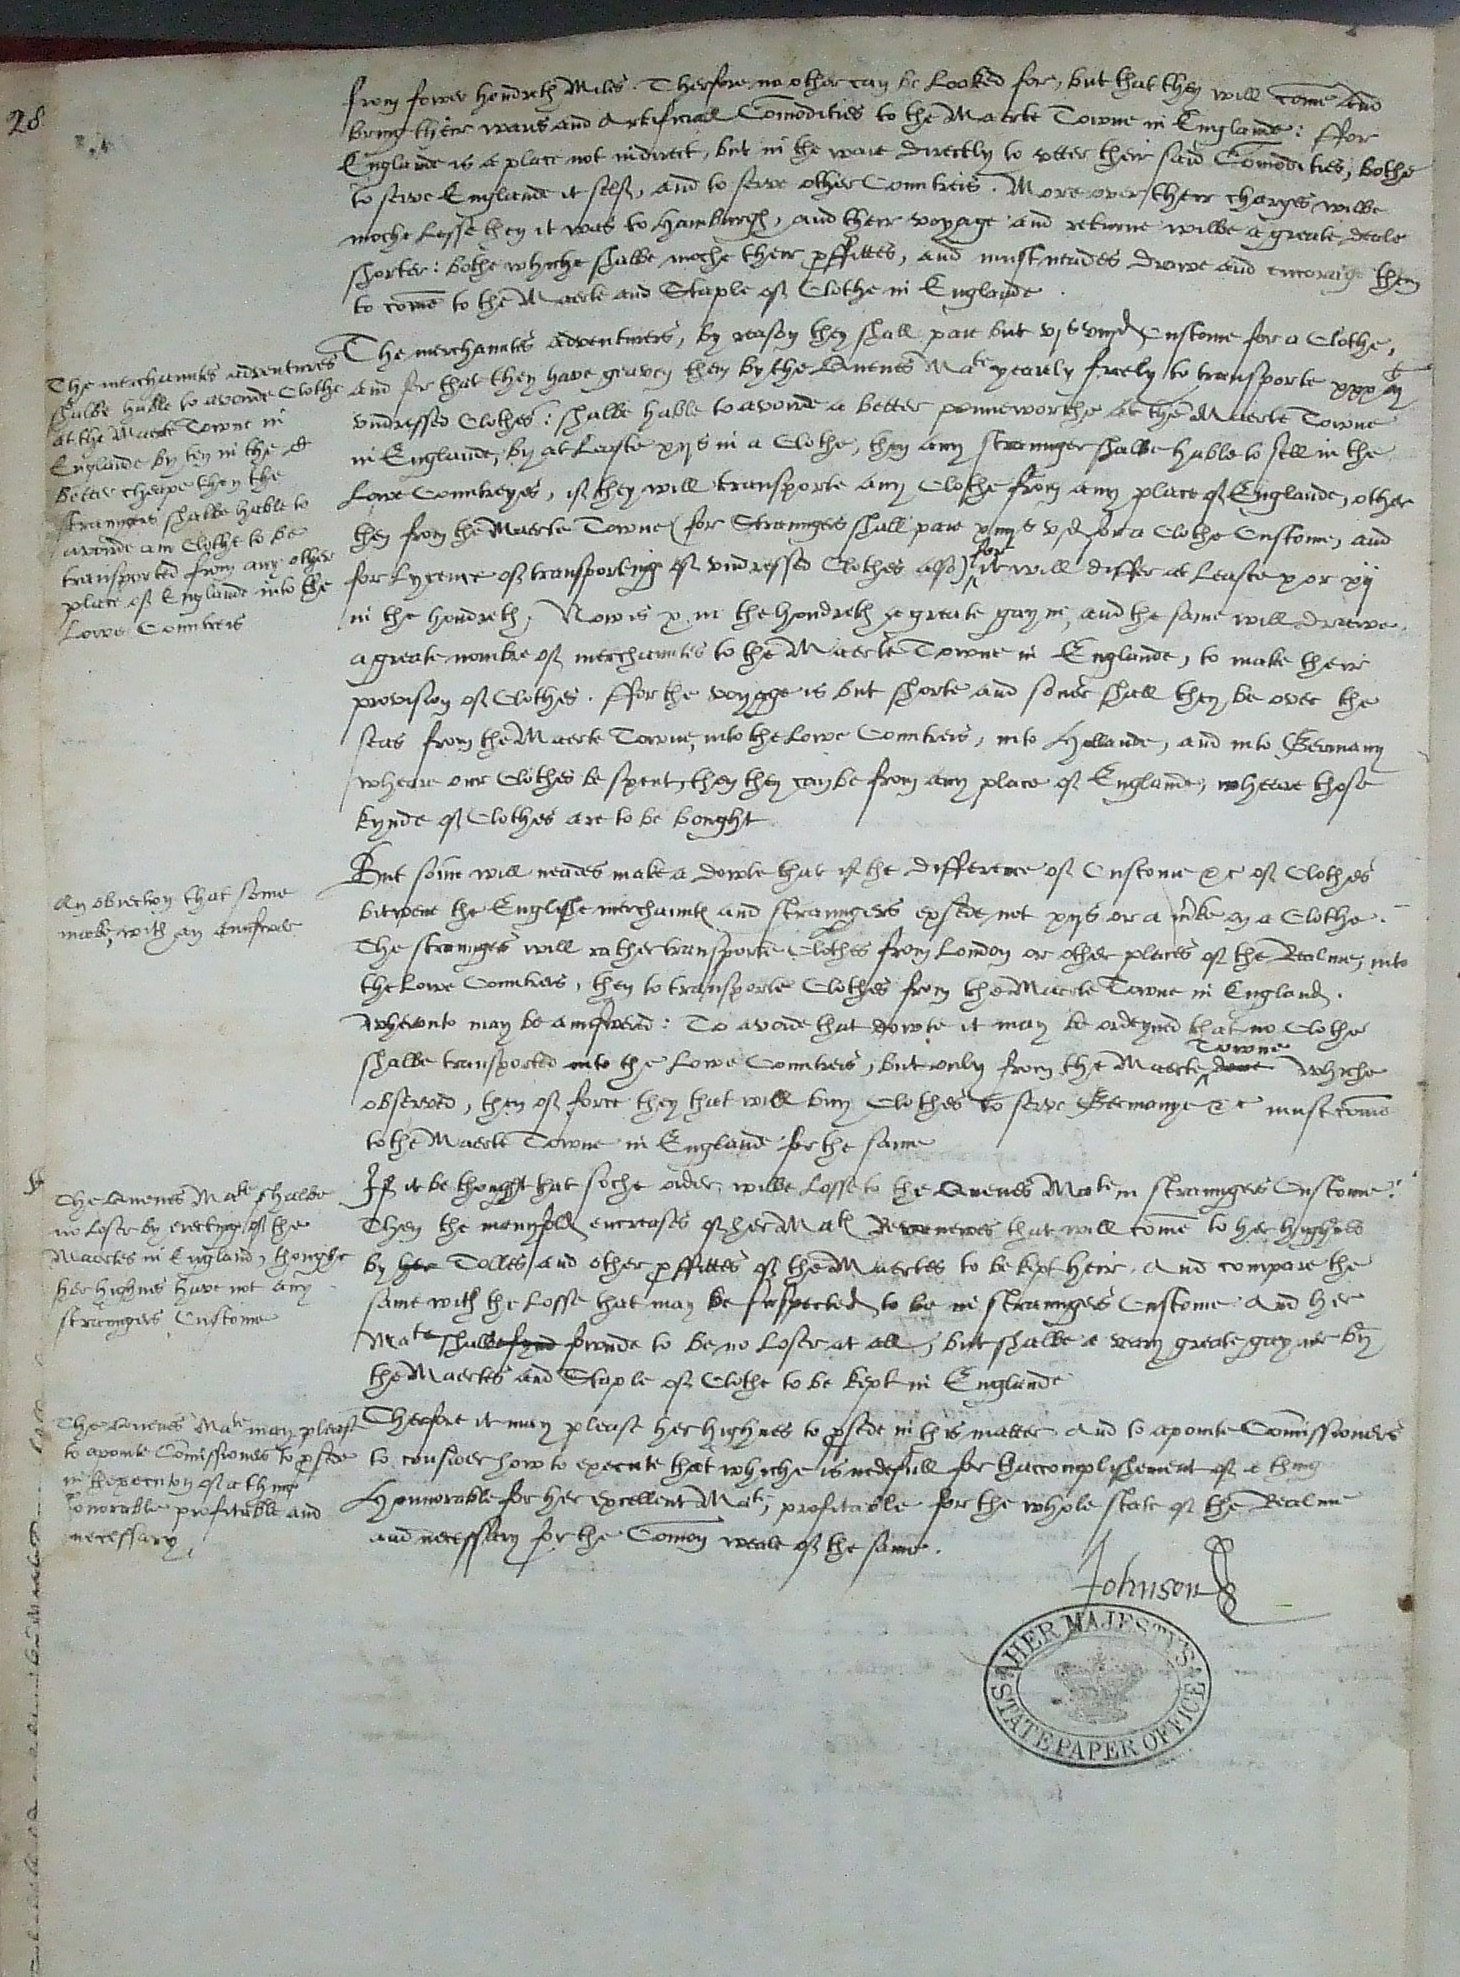 28
from fower hondreth Miles. Therfore no other can be looked for, but that they will come and
bring their wares and Artificiall Comodities to the Maerte Towne in Englande: ffor
Englande is a place not indirect, but in the waie directly to vtter their said Comodities, bothe
to serve Englande it self, and to serve other Countreis. More over their charges wilbe
moche lesse then it was to Hamburgh, and their voyage and retourne wilbe a greate deale
shorter: bothe whiche shalbe moche their proffittes, and must neades drawe and encoraige them
to come to the Maerte and Staple of Clothe in Englande.
The merchauntes adventurers
shalbe hable to avorde Clothe
at the Maerte Towne in
Englande by ten in the C
better cheape then the
straungers shalbe hable to
avorde anie Clothe to be
transported from any other
place of Englande into the
Lowe Countreis
The merchauntes adventurers, by reason they shall paie but vjs viijd Custome for a Clothe,
and for that they have geaven them by the Quenes Mate yearely freely to transporte xxx M
vndressed Clothes: shalbe hable to avorde a better penneworthe at the Maerte Towne
in Englande, by at Leaste xijs in a Clothe, then any straunger shalbe hable to sell in the
Lowe Countreyes, if they will transporte any Clothe from any place of Englande, other
then from the Maerte Towne (for Straungers shall paie xiiijs vjd for a Clothe Custome, and
for Lycence of transporting of vndressed Clothes also) for it will differ at Leaste x or xij
in the hondreth. Now is x in the hondreth a greate gayne, and the same will drawe
a greate nombre of merchauntes to the Maerte Towne in Englande, to make their
provision of Clothes. ffor the voyage is but shorte and soner shall they be over the
seas from the Maerte Towne, into the Lowe Countreis, into Hollande, and into Germany
wheare our Clothes be spent, then they can be from any place of Englande, wheare those
kynde of Clothes are to be bought
An obiection that some
make, with an answere
But some will neades make a dowte that if the difference of Custome &c of Clothes
bitwene the Englishe merchauntes and straungers excede not xijs or a mrke in a Clothe.
The straungers will rather transporte Clothes from London or other places of the Realme, into
the Lowe Countreis, then to transporte Clothes from the Maerte Towne in England.
Wherunto may be answered: To avoide that dowte it may be ordeyned that no Clothe
shalbe transported into the Lowe Countreis, but only from the Maerte Towne whiche
observed, then of force they that will buy Clothes to serve Germanye &c must come
to the Maerte Towne in England for the same
The Quenes Mate shalbe
no loser by erecting of the
Maertes in England, thoughe
her highnes have not any
straungers Custome
If it be thought that soche order wilbe losse to the Quenes Mate in straungers Custome?
Then the manyfold encreases of her Mates Revenewes that will come to her highnes
by her Tolles and other proffittes of the Maertes to be kept heir. And compare the
same with the losse that may be suspected to be in straungers Custome. And her
Mate shalbe fynd founde to be no loser at all, but shalbe a very greate gayner by
the Maertes and Staple of Clothe to be kept in Englande
The Quenes Mate may please
to apointe Comissioners to procede
in thexecution of a thing
honorable profitable and
necessary.
Therfore it may please her highnes to procede in this matter and to apointe Comissioners
to consider how to execute that whiche is nedefull for thaccomplishement of a thing
Honnorable for her excellent Mate, profitable for the whole state of the Realme
and necessary for the Comon weale of the same.
Johnson
HER MAJESTY'S
STATE PAPER OFFICE